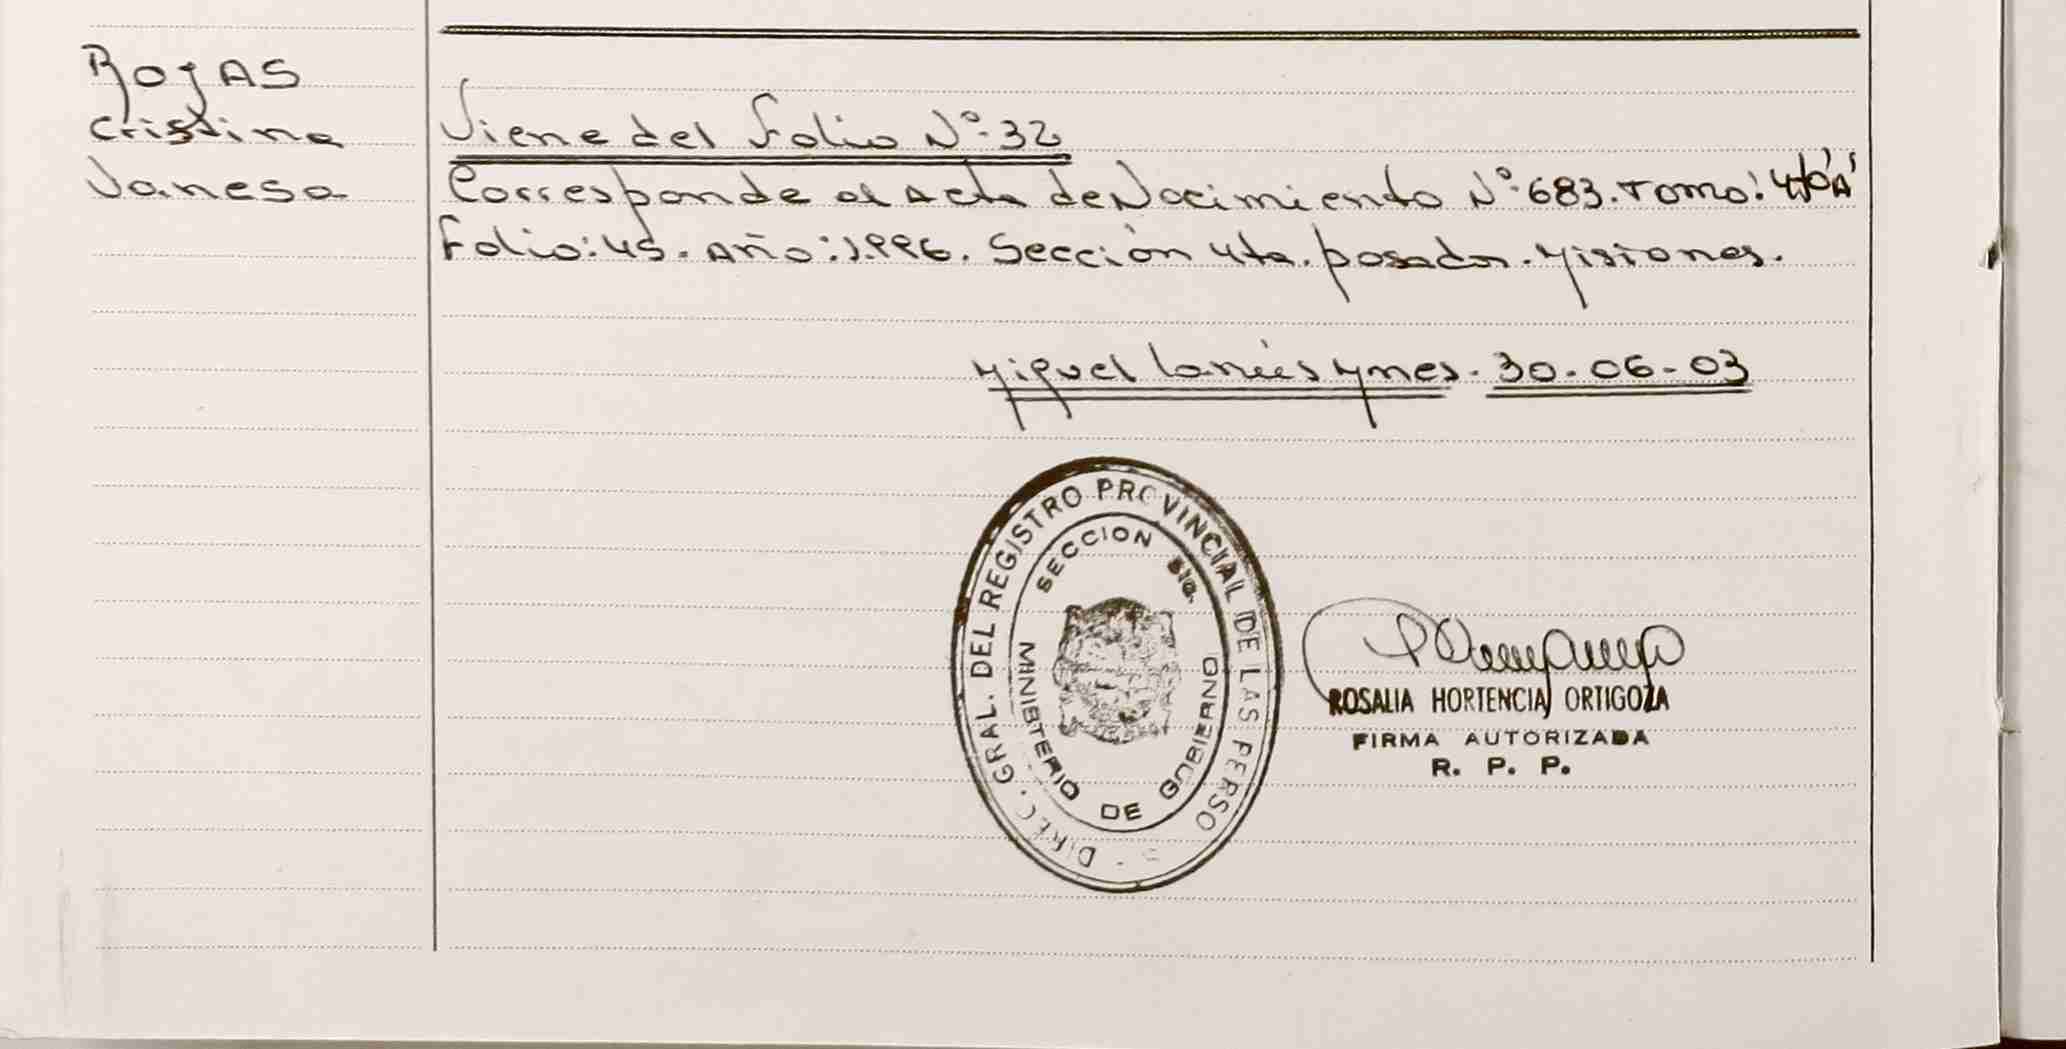 Rojas
Cristina
Vanesa
Viene del Folio Nº 32
Corresponde al Acta de Nacimiento Nº 683. Tomo: 4to "A"
Folio: 45. Año: 1.996. Sección 4ta. Posadas. Misiones.
Miguel Ynes. 30-06-03
DIREC. GRAL. DEL REGISTRO PROVINCIAL DE LAS PERSO
SECCION 5ta.
MINISTERIO DE GOBIERNO
ROSALIA HORTENCIA ORTIGOZA
FIRMA AUTORIZADA
R. P. P.